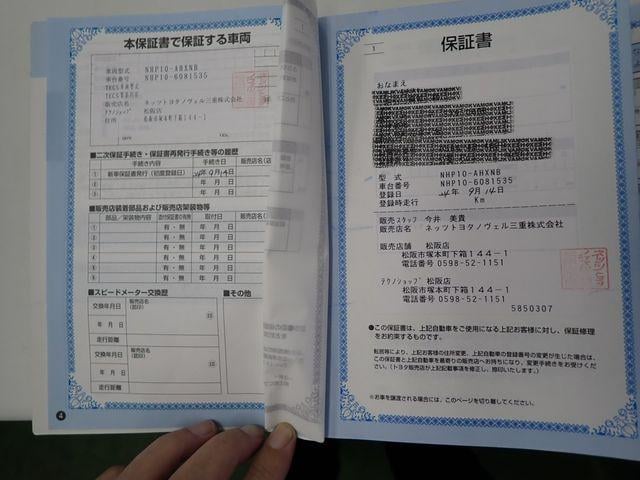 本保証書で保証する車両
車両型式 NHP10-AHXNB
車台番号 NHP10-6081535
販売店名 ネッツトヨタノヴェル三重株式会社
テクノショップ 松阪店
住所
■二次保証手続き・保証書再発行手続き等の履歴
手続き内容 手続き日 販売店名(店
① 新車保証書発行(初度登録日) 年9月14日
② 年 月 日
③ 年 月 日
■販売店装着部品および販売店架装物等
部品/架装物内容 添付保証書の有無 取付日 販売店名(
① 有・無 年 月 日
② 有・無 年 月 日
③ 有・無 年 月 日
④ 有・無 年 月 日
⑤ 有・無 年 月 日
■スピードメーター交換歴
■その他
交換年月日 販売店名
年 月 日
走行距離
交換年月日 販売店名
年 月 日
走行距離
4
1
保証書
おなまえ
型式 NHP10-AHXNB
車台番号 NHP10-6081535
登録日 年 9月 14日
登録時走行 Km
販売スタッフ 今井 美貴
販売店名 ネッツトヨタノヴェル三重株式会社
販売店舗 松阪店
松阪市塚本町下箱144-1
電話番号 0598-52-1151
テクノショップ 松阪店
松阪市塚本町下箱144-1
電話番号 0598-52-1151
5850307
●この保証書は、上記自動車をご使用になる上記お客様に対し、保証修理
をお約束するものです。
転居等により、上記お客様の住所変更、上記自動車の登録番号の変更が生じた場合は、
この保証書と上記自動車を最寄りの販売店へお持ちになり、変更手続きをお受けくだ
さい。(トヨタ販売店が上記記載事項を修正し、捺印いたします。)
※お車を譲渡される場合には、このページを切り離してください。